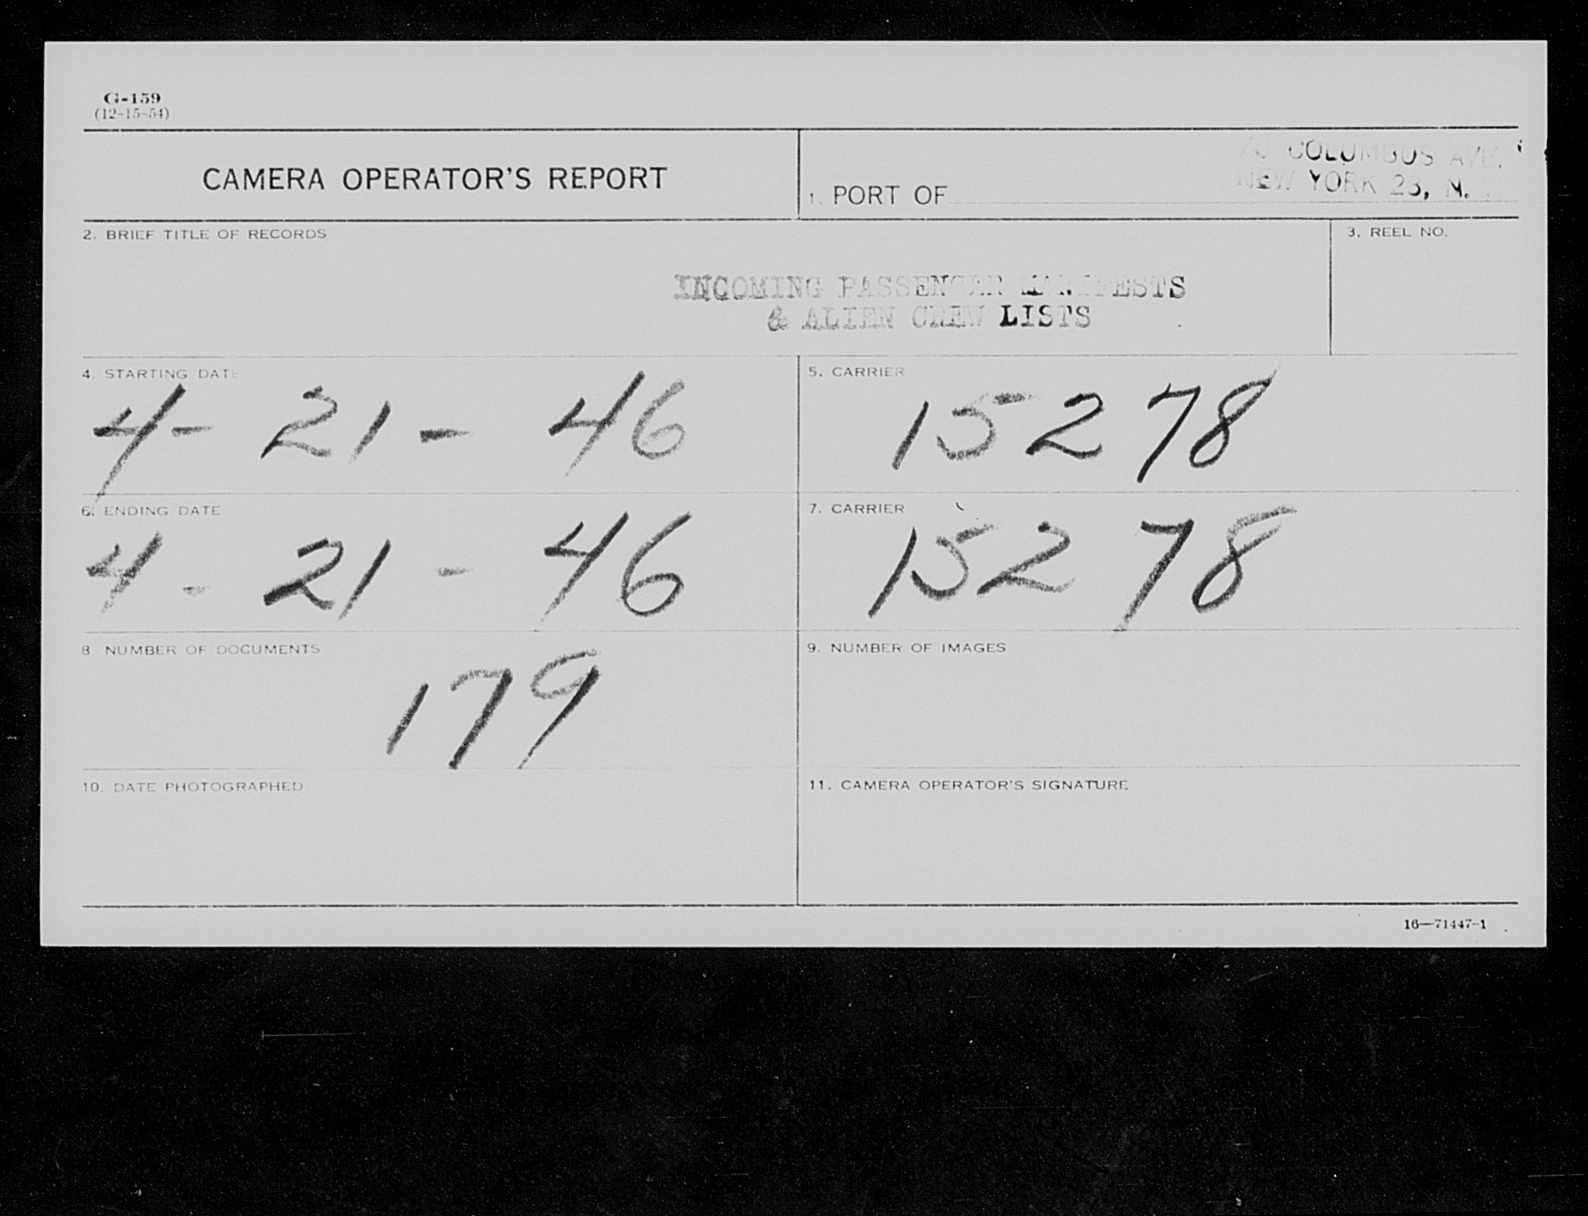 G-159
(12-15-54)
CAMERA OPERATOR'S REPORT
1. PORT OF
COLUMBUS AVE.
NEW YORK 23, N.
2. BRIEF TITLE OF RECORDS
3. REEL NO.
INCOMING PASSENGER MANIFESTS
& ALIEN CREW LISTS
4. STARTING DATE
4- 21 - 46
5. CARRIER
15278
6. ENDING DATE
4 - 21 - 46
7. CARRIER
15278
8. NUMBER OF DOCUMENTS
179
9. NUMBER OF IMAGES
10. DATE PHOTOGRAPHED
11. CAMERA OPERATOR'S SIGNATURE
16—71447-1